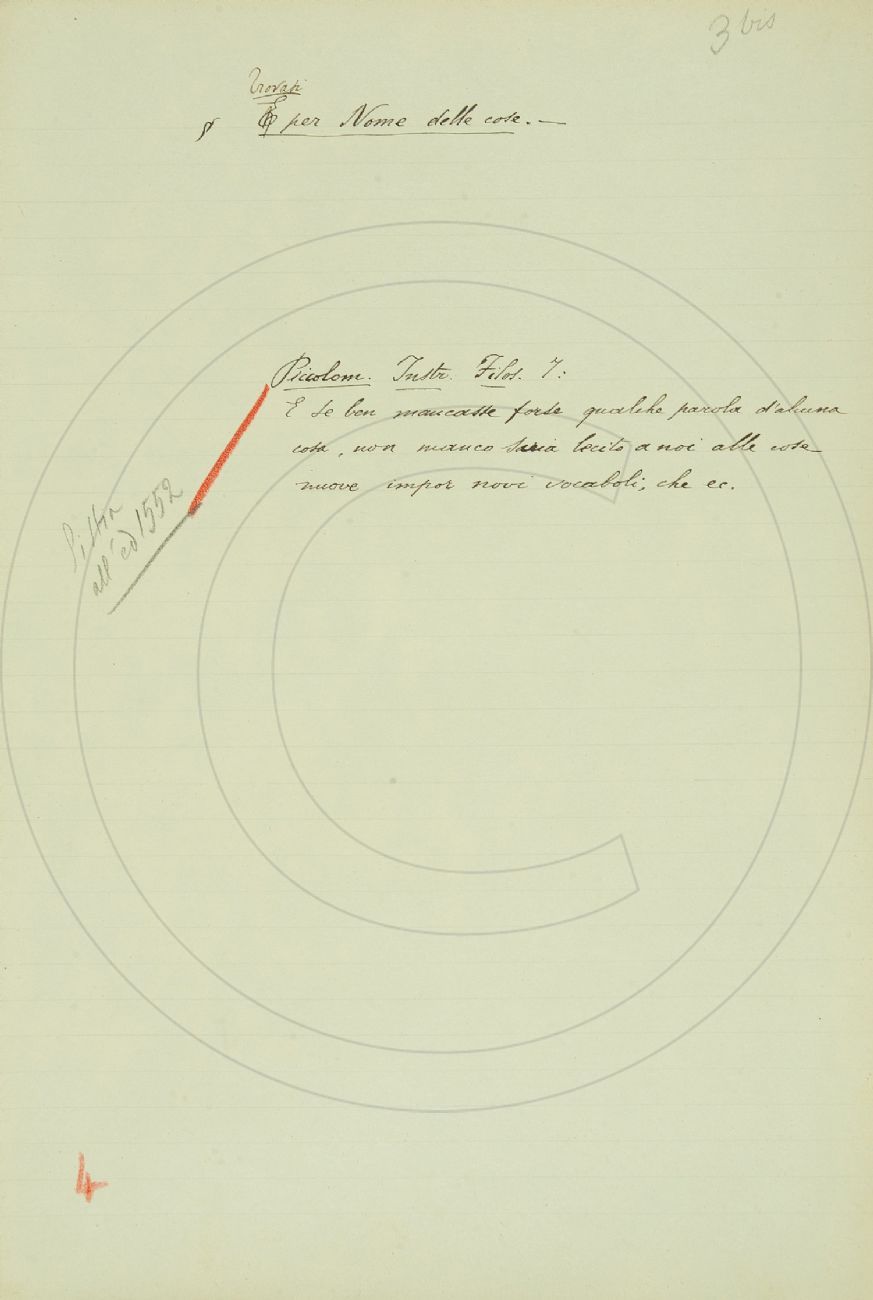 3 bis
Trovasi
§ E per Nome delle cose. —
Piccolom. Instr. Filos. 7:
E se ben mancasse forse qualche parola d'alcuna
cosa, non manco saria lecito a noi alle cose
nuove impor novi vocaboli; che ec.
all'ed 1552
4